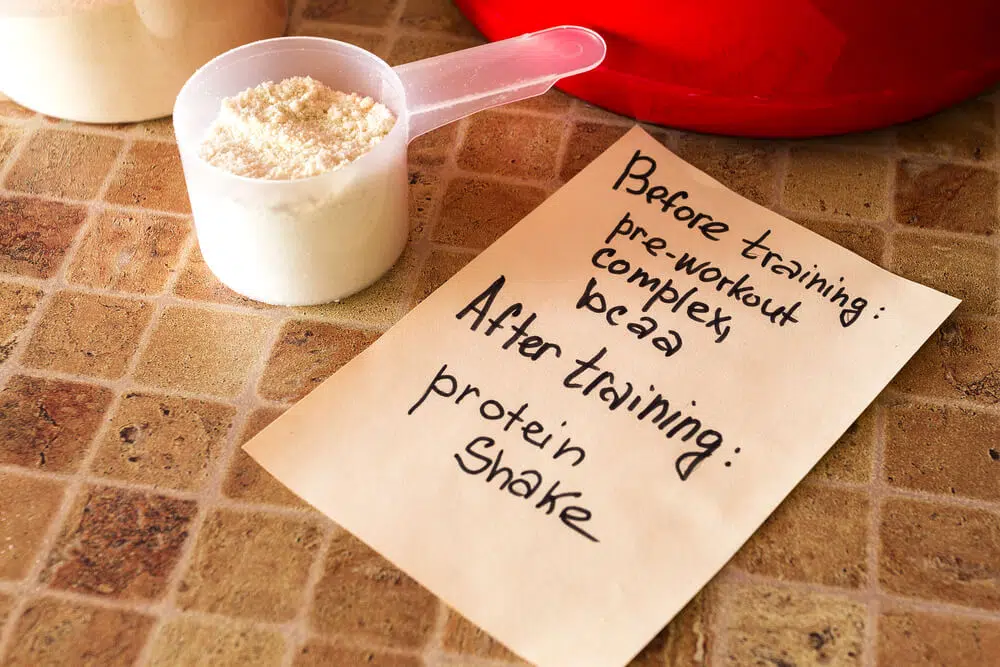 Before training:
pre-workout
complex,
bcaa
After training:
protein
Shake